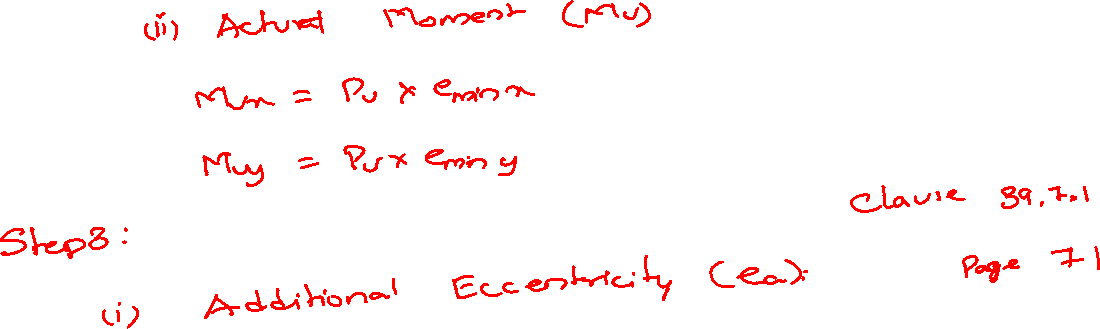 (ii) Actual Moment (Mu)
Mux = Pu x emin x
Muy = Pu x emin y
Clause 39.7.1
Step3:
Page 71
(i) Additional Eccentricity (ea):